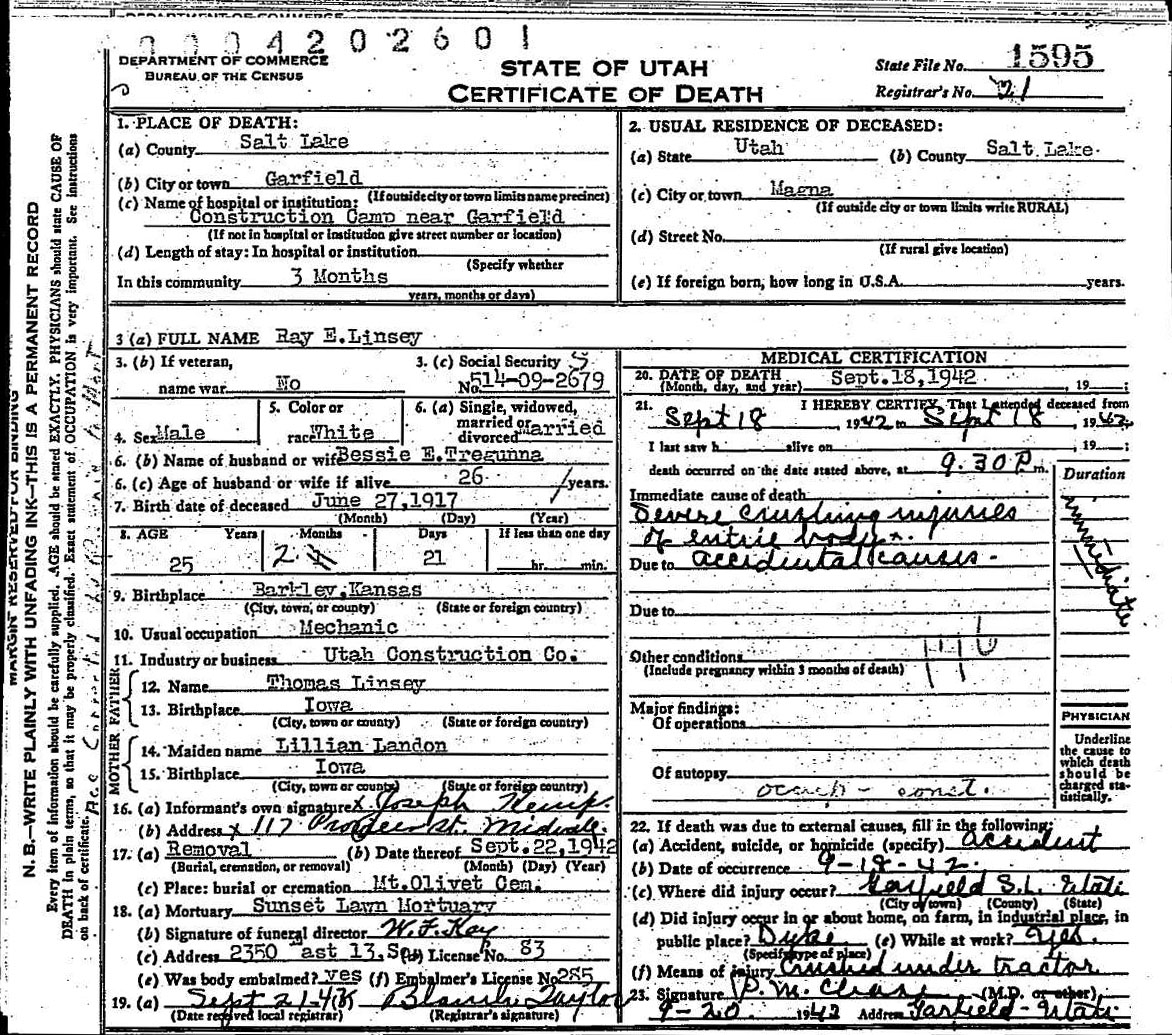 DEPARTMENT OF COMMERCE
0004202601
DEPARTMENT OF COMMERCE
BUREAU OF THE CENSUS
STATE OF UTAH
CERTIFICATE OF DEATH
State File No. 1595
Registrar's No. 21
MARGIN RESERVED FOR BINDING
N. B.—WRITE PLAINLY WITH UNFADING INK—THIS IS A PERMANENT RECORD
Every item of information should be carefully supplied. AGE should be stated EXACTLY. PHYSICIANS should state CAUSE OF
DEATH in plain terms, so that it may be properly classified. Exact statement of OCCUPATION is very important. See instructions
on back of certificate.
1. PLACE OF DEATH:
(a) County Salt Lake
(b) City or town Garfield
(If outside city or town limits name precinct)
(c) Name of hospital or institution:
Construction Camp near Garfield
(If not in hospital or institution give street number or location)
(d) Length of stay: In hospital or institution
(Specify whether
In this community 3 Months
years, months or days)
2. USUAL RESIDENCE OF DECEASED:
(a) State Utah (b) County Salt Lake
(c) City or town Magna
(If outside city or town limits write RURAL)
(d) Street No.
(If rural give location)
(e) If foreign born, how long in U.S.A. years.
3 (a) FULL NAME Ray E.Linsey
3. (b) If veteran, 3. (c) Social Security
name war No No. 514-09-2679
5. Color or 6. (a) Single, widowed,
married or
4. Sex Male race White divorced Married
6. (b) Name of husband or wife Bessie E.Tregunna
6. (c) Age of husband or wife if alive 26 years.
7. Birth date of deceased June 27,1917
(Month) (Day) (Year)
8. AGE Years Months Days If less than one day
25 2 21 hr. min.
9. Birthplace Barkley,Kansas
(City, town, or county) (State or foreign country)
10. Usual occupation Mechanic
11. Industry or business Utah Construction Co.
FATHER
12. Name Thomas Linsey
13. Birthplace Iowa
(City, town or county) (State or foreign country)
MOTHER
14. Maiden name Lillian Landon
15. Birthplace Iowa
(City, town or county) (State or foreign country)
16. (a) Informant's own signature x Joseph Kemp.
(b) Address x 117 St. Midvale.
17. (a) Removal (b) Date thereof Sept.22,1942
(Burial, cremation, or removal) (Month) (Day) (Year)
(c) Place: burial or cremation Mt.Olivet Cem.
18. (a) Mortuary Sunset Lawn Mortuary
(b) Signature of funeral director W. F. Kay
(c) Address 2350 ast 13.So. (d) License No. 83
(e) Was body embalmed? yes (f) Embalmer's License No 285
19. (a) Sept 21-42 Blanch Taylor
(Date received local registrar) (Registrar's signature)
MEDICAL CERTIFICATION
20. DATE OF DEATH Sept.18,1942
(Month, day, and year) , 19 ;
21. I HEREBY CERTIFY, That I attended deceased from
Sept 18 , 1942 to Sept 18 , 1942
I last saw h alive on , 19 ;
death occurred on the date stated above, at 9.30 P m.
Duration
Immediate cause of death
Severe crushing injuries
of entire body.
immediate
Due to accidental causes -
Due to
Other conditions
(Include pregnancy within 3 months of death)
Major findings:
Of operations
Of autopsy
PHYSICIAN
Underline
the cause to
which death
should be
charged sta-
tistically.
22. If death was due to external causes, fill in the following:
(a) Accident, suicide, or homicide (specify) accident
(b) Date of occurrence 9-18-42
(c) Where did injury occur? Garfield S.L. Utah
(City or town) (County) (State)
(d) Did injury occur in or about home, on farm, in industrial place, in
public place? Dyke (e) While at work? Yes.
(Specify type of place)
(f) Means of injury Crushed under tractor
23. Signature P. M. Chase (M.D. or other)
9-20 1942 Address Garfield - Utah